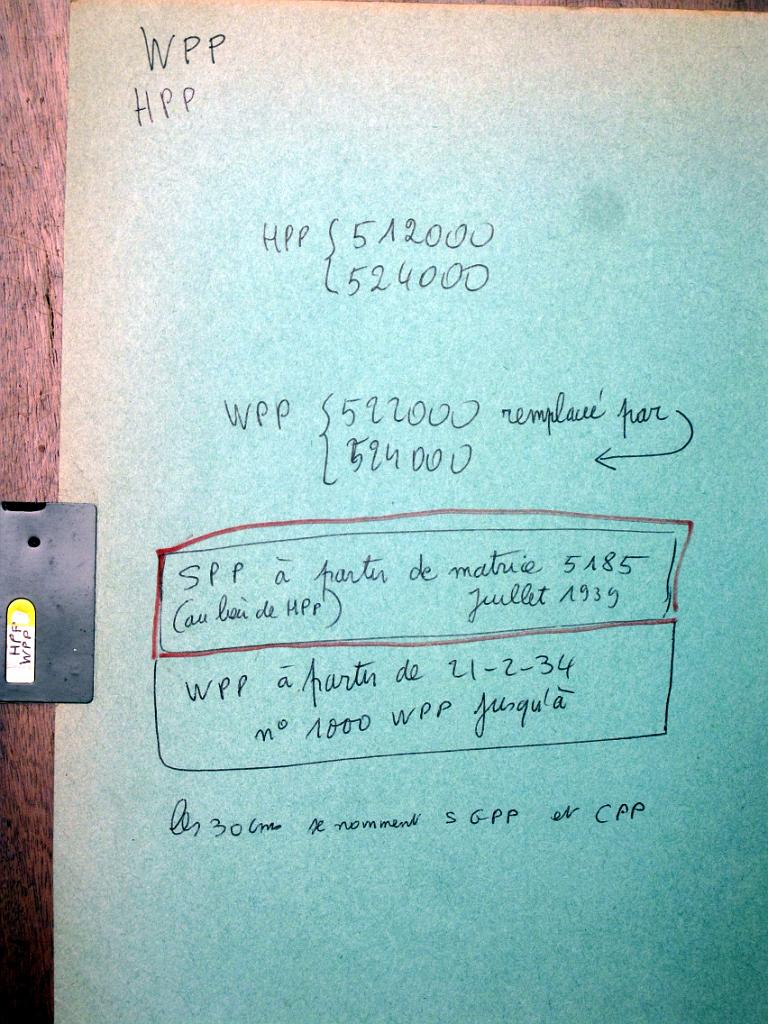 WPP
HPP
HPP { 512000
524000
WPP { 522000 remplacé par
524000
SPP à partir de matrice 5185
(au lieu de HPP) Juillet 1939
WPP à partir de 21-2-34
n° 1000 WPP jusqu'à
les 30 cms se nomment SGPP et CPP
HPP
WPP